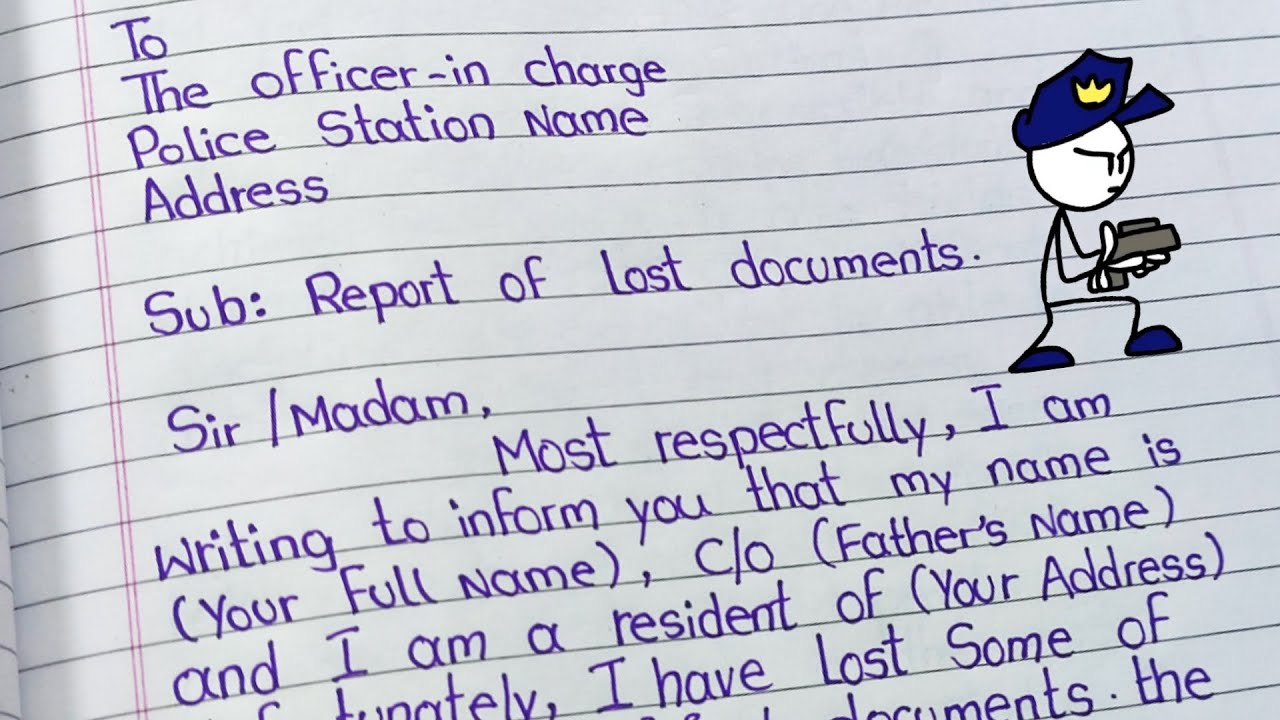 To
The officer-in charge
Police Station Name
Address
Sub: Report of lost documents.
Sir/Madam,
Most respectfully, I am
writing to inform you that my name is
(Your Full Name), C/O (Father's Name)
and I am a resident of (Your Address)
tunately, I have Lost Some of
documents. the